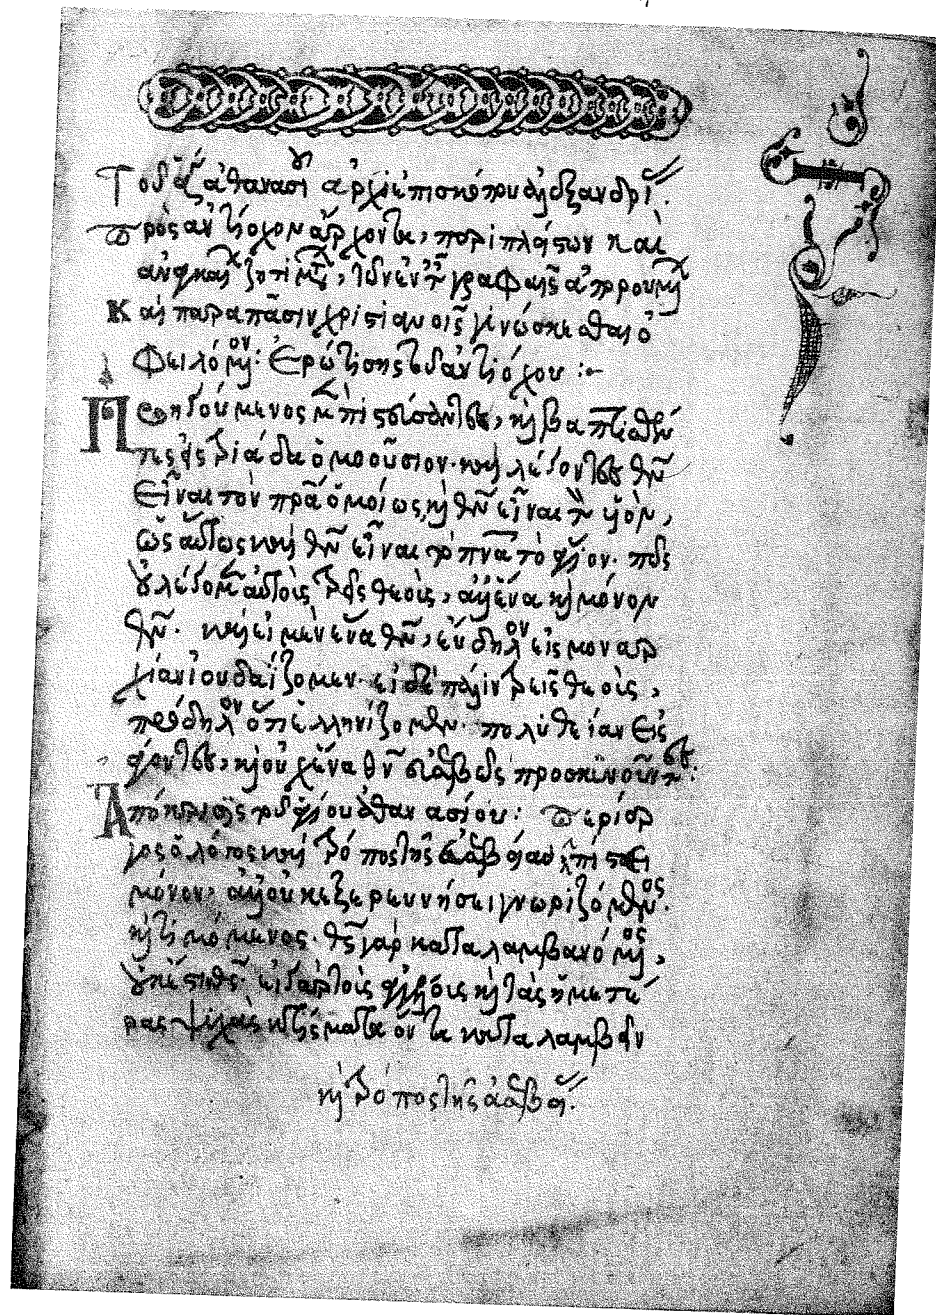 Τοῦ ἁγ ἀθανασίου ἀρχιεπισκόπου ἀλεξανδρεί
πρὸς ἀντίοχον ἄρχοντα, περὶ πλείστων καὶ
ἀναγκαίων ζητημάτων, τῶν ἐν ταῖς γραφαῖς ἀπορουμένων
καὶ παρὰ πᾶσιν χριστιανοῖς γινώσκεσθαι ὀ
φειλόμενον: Ἐρώτησις τοῦ ἀντιόχου :~
πιστεύσαντες, καὶ βαπτισθέν
τες εἰς τριάδα ὁμοούσιον· καὶ λέγοντες θν
εἶναι τὸν πρα ὁμοίως, καὶ θν εἶναι τὸν υἱόν,
ὡσαύτως καὶ θν εἶναι τὸ πνα τὸ ἅγιον· πῶς
οὐ λέγομεν αὐτοὺς τρεῖς θεοὺς, ἀλλ' ἕνα καὶ μόνον
θν. καὶ εἰ μὲν ἕνα θν, εὔδηλον εἰς μοναρ
χίαν ἰουδαΐζομεν· εἰ δὲ πάλιν τρεῖς θεοὺς,
πρόδηλον ὅτι ἑλληνίζομεν· πολυθεΐαν εἰσ
άγοντες, καὶ οὐχ ἕνα θν εὐσεβῶς προσκυνοῦντες:
Ἀπόκρισις τοῦ ἁγίου ἀθανασίου: περίερ
γος ὁ λόγος καὶ τρόπος τῆς πίστει
μόνον, ἀλλ' οὐκ ἐξερευνήσει γνωριζόμενος.
καὶ τιμώμενος· θς γὰρ καταλαμβανόμενος,
οὐκ ἔστι θς· εἰ γὰρ τοὺς ἀγγέλους καὶ τὰς ἡμετέ
ρας ψυχὰς κτίσματα ὄντα καταλαβεῖν
καὶ τρόπος τῆς